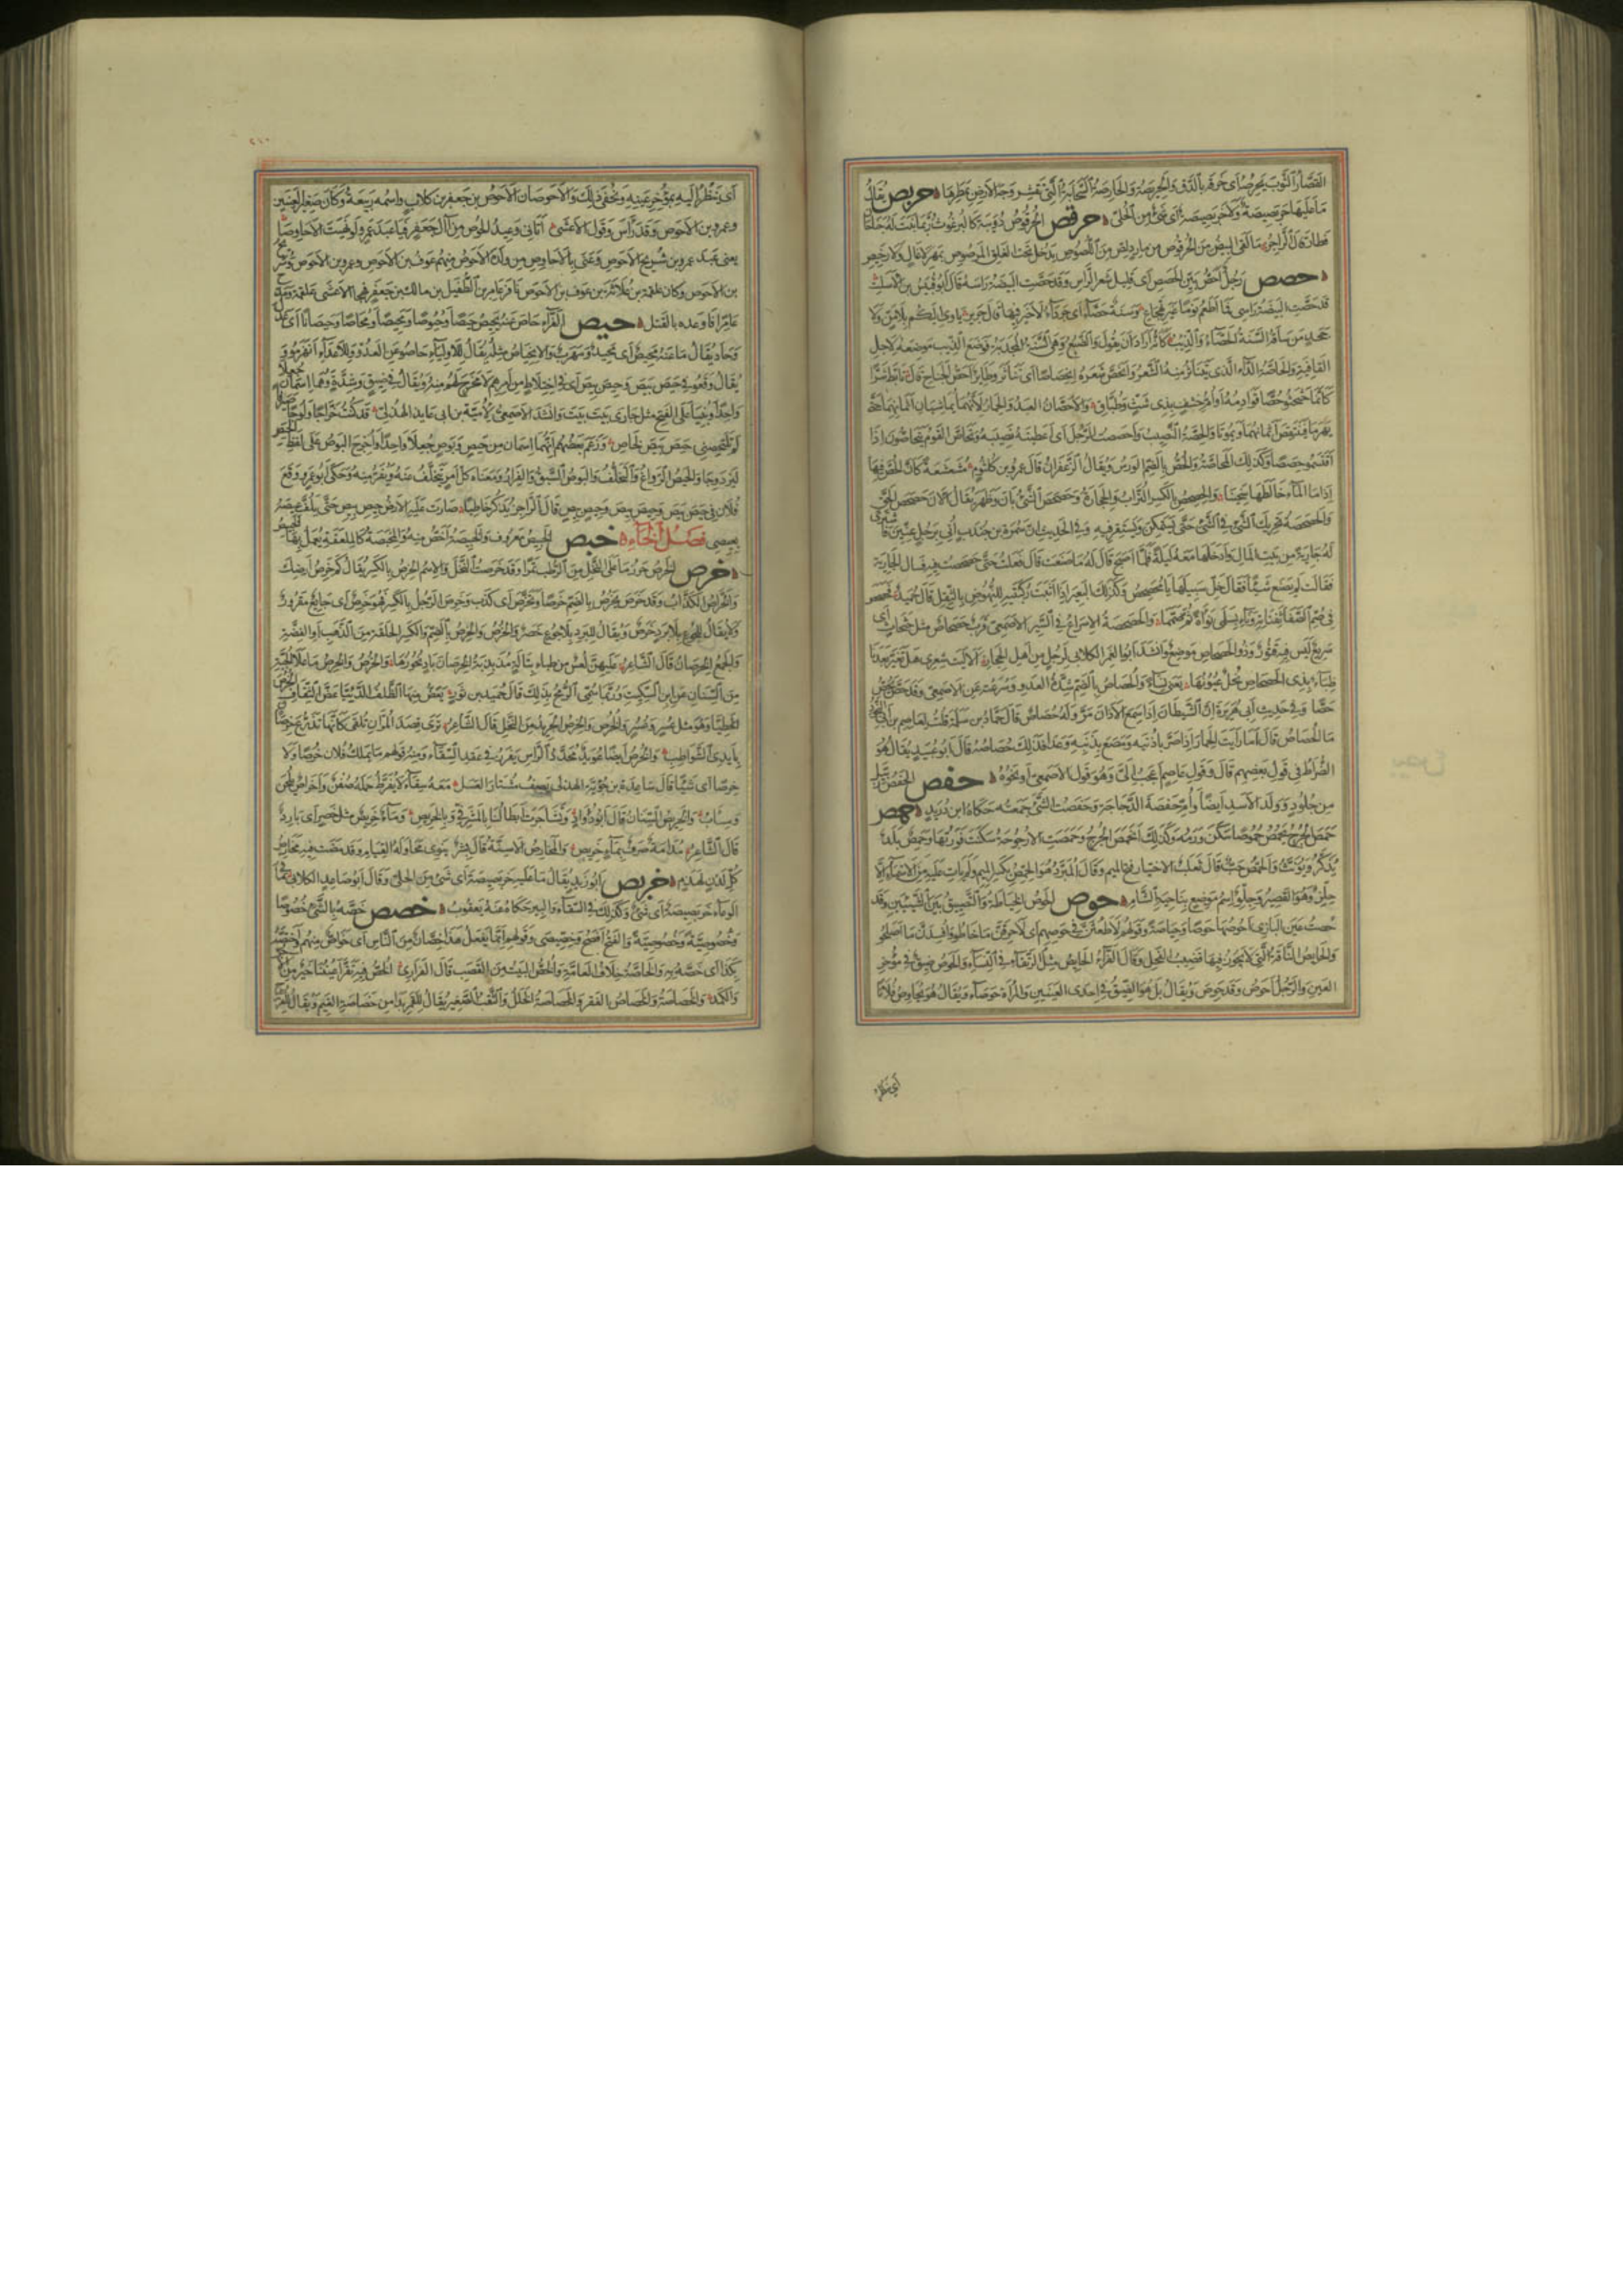 القصار الثوب يحرصه أي خرقه بالدق والحرصة والحارصة السحابة التي تقشر وجه الأرض بمطرها حربص يقال
ما عليها حربصيصة ولا خربصيصة أي شيء من الحلي حرقص الحرقوص دويبة كالبرغوث وربما نبت له جناحان
فطار قال الراجز ما لقي البيض من الحرقوص من مارد لص من اللصوص يدخل تحت الغلق المرصوص بمهر لا غال ولا رخيص
حصص رجل أحص بين الحصص أي قليل شعر الرأس وقد حصت البيضة رأسه قال أبو قيس بن الأسلت
قد حصت البيضة رأسي فما أطعم نوما غير تهجاع وسنة حصاء أي جرداء لا خير فيها قال جرير يأوي إليكم بلا من ولا
جحد من ساقه السنة الحصاء والذيب كأنه أراد أن يقول والضبع وهي السنة المجدبة فوضع الذيب موضعه لأجل
القافية والحاصة الداء الذي يتناثر منه الشعر وانحص شعره انحصاصا أي تناثر وطائر أحص الجناح قال تأبط شرا
كأنما حثحثوا حصا قوادمه أو أم خشف بذي شث وطباق والأحصان العبد والحمار لأنهما يماشيان أثمانهما حتى
يهرما فتنتقص أثمانهما ويموتا والحصة النصيب وأحصصت الرجل أي أعطيته نصيبه وتحاص القوم يتحاصون إذا
اقتسموا حصصا وكذلك المحاصة والحص بالضم الورس ويقال الزعفران قال عمرو بن كلثوم مشعشعة كأن الحص فيها
إذا ما الماء خالطها سخينا والحصحص بالكسر التراب والحجارة وحصحص الشيء بان وظهر يقال الآن حصحص الحق
والحصحصة تحريك الشيء في الشيء حتى يستمكن ويستقر فيه وفي الحديث أن سمرة بن جندب أتي برجل عنين فاشترى
له جارية من بيت المال وأدخلها معه ليلة فلما أصبح قال له ما صنعت قال فعلت حتى حصحص فيه فسأل الجارية
فقالت لم يصنع شيئا فقال خل سبيلها يا محصحص وكذلك البعير إذا أثبت ركبتيه للنهوض بالثقل قال حميد فحصحص
في صم الصفا ثفناته وناء بسلمى نوأة ثم صمما والحصحصة الإسراع في السير الأصمعي قرب حصحاص مثل حثحاث أي
سريع ليس فيه فتور وذو الحصحاص موضع وأنشد أبو الغمر الكلابي لرجل من أهل الحجاز ألا ليت شعري هل تغير بعدنا
ظباء بذي الحصحاص نجل عيونها يعني نساء والحصاص بالضم شدة العدو وسرعته عن الأصمعي وقد حص يحص
حصا وفي حديث أبي هريرة إن الشيطان إذا سمع الأذان مر وله حصاص قال حماد بن سلمة قلت لعاصم بن أبي النجود
ما الحصاص قال أما رأيت الحمار إذا صر بأذنيه ومصع بذنبه وعدا فذلك حصاصه قال أبو عبيد يقال هو
الضراط في قول بعضهم قال وقول عاصم أعجب إلي وهو قول الأصمعي أو نحوه حفص الحفص زبيل
من جلود وولد الأسد أيضا وأم حفصة الدجاجة وحفصت الشيء جمعته حكاه ابن دريد حمص
حمص الجرح يحمص حموصا سكن ورمه وكذلك انحمص الجرح وحمصت الأرجوحة سكنت فورتها وحمص بلد
يذكر ويؤنث والحمص حب قال ثعلب الاختيار فتح الميم وقال المبرد هو الحمص بكسر الميم ولم يأت عليه من الأسماء إلا
حلز وهو القصير وجلق اسم موضع بناحية الشأم حوص الحوص الخياطة والتضييق بين الشيئين وقد
حصت عين البازي أحوصها حوصا وحياصة وقولهم لأطعنن في حوصهم أي لأخرقن ما خاطوا وأفسدن ما أصلحوا
والحائص الناقة التي لا يجوز فيها قضيب الفحل وقال الفراء الحائص مثل الرتقاء في النساء والحوص ضيق في مؤخر
العين والرجل أحوص وقد حوص ويقال بل هو الضيق في إحدى العينين والمرأة حوصاء ويقال هو يحاوص فلانا
أي ينظر
أي ينظر إليه بمؤخر عينه ويخفي ذلك والأحوصان الأحوص بن جعفر بن كلاب واسمه ربيعة وكان صغير العينين
وعمرو بن الأحوص وقد رأس وقول الأعشى أتاني وعيد الحوص من آل جعفر فيا عبد عمرو لو نهيت الأحاوصا
يعني عبد عمرو بن شريح بن الأحوص وعنى بالأحاوص من ولده الأحوص منهم عوف بن الأحوص وعمرو بن الأحوص وشريح
بن الأحوص وكان علقمة بن علاثة بن عوف بن الأحوص نافر عامر بن الطفيل بن مالك بن جعفر فهجا الأعشى علقمة ومدح
عامرا فأوعده بالقتل حيص الفراء حاص عنه يحيص حيصا وحيوصا ومحيصا ومحاصا وحيصانا أي عدل
وحاد يقال ما عنه محيص أي محيد ومهرب والانحياص مثله يقال للأولياء حاصوا عن العدو وللأعداء انهزموا و
يقال وقعوا في حيص بيص وحيص بيص أي في اختلاط من أمرهم لا مخرج لهم منه ويقال في ضيق وشدة وهما اسمان جعلا
واحدا وبنيا على الفتح مثل جاري بيت بيت وأنشد الأصمعي لأمية بن أبي عائذ الهذلي قد كنت خراجا ولوجا صيرفا
لم تلتحصني حيص بيص لحاص وزعم بعضهم أنهما اسمان من حيص وبوص جعلا واحدا وأخرج البوص على لفظ الحيص
ليزدوجا والحيص الرواغ والتخلف والبوص السبق والفرار ومعناه كل أمر يتخلف عنه ويفر منه وحكى أبو عمرو وقع
فلان في حيص بيص وحيص بيص وحيص بيص قال الراجز يذكر خاطبا صارت عليه الأرض حيص بيص حتى يلف عيصه
بعيصي فصل الخاء خبص الخبيص معروف والخبيصة أخص منه والمخبصة كالملعقة يعمل بها الخبيص
خرص الخرص حزر ما على النخل من الرطب تمرا وقد خرصت النخل والاسم الخرص بالكسر يقال كم خرص أرضك
والخراص الكذاب وقد خرص يخرص بالضم خرصا وتخرص أي كذب وخرص الرجل بالكسر فهو خرص أي جائع مقرور
ولا يقال للجوع بلا برد خرص ويقال للبرد بلا جوع خصر والخرص والخرص بالضم والكسر الحلقة من الذهب أو الفضة
والجمع الخرصان قال الشاعر عليهن لعس من ظباء تبالة مذبذبة الخرصان باد نحورها والخرص والخرص ما علا الجبة
من السنان عن ابن السكيت وربما سمي الرمح بذلك قال حميد بن ثور يعض منها الظلف الدئيا عض الثقاف الخرص
الخطيا وهو مثل عسر وعسر والخرص والخرص الجريد من النخل قال الشاعر ترى قصد المران تلقى كأنها تذرع خرصان
بأيدي الشواطب والخرص أيضا عويد محدد الرأس يغرز في عقد السقاء ومنه قولهم ما يملك فلان خرصا ولا
خرصا أي شيئا قال ساعدة بن جؤية الهذلي يصف مشتار العسل معه سقاء لا يفرط حمله صفن وأخراص يلحن
ومسأب والخريص السنان قال أبو دؤاد وتشاجرت أبطالنا بالمشرفي وبالخريص وماء خريص مثل خصر أي بارد
قال الشاعر مدامة صرف بماء خريص والمخارص الأسنة قال بشر ينوي محاولة القيام وقد مضت فيه مخارص
كل لدن لهذم خربص أبو زيد يقال ما عليه خربصيصة أي شيء من الحلي وقال أبو صاعد الكلابي ما في
الوعاء خربصيصة أي شيء وكذلك في السقاء والبير حكاه عنه يعقوب خصص خصه بالشيء خصوصا
وخصوصية وخصوصية والفتح أفصح وخصيصى وقولهم إنما يفعل هذا خصان من الناس أي خواص منهم واختصه
بكذا أي خصه به والخاصة خلاف العامة والخص البيت من القصب قال الفزاري الخص فيه تقر أعيننا خير من الآجر
والكمد والخصاصة والخصاص الفقر والخصاصة الخلل والثقب الصغير يقال للقمر بدا من خصاصة الغيم ويقال للفرج